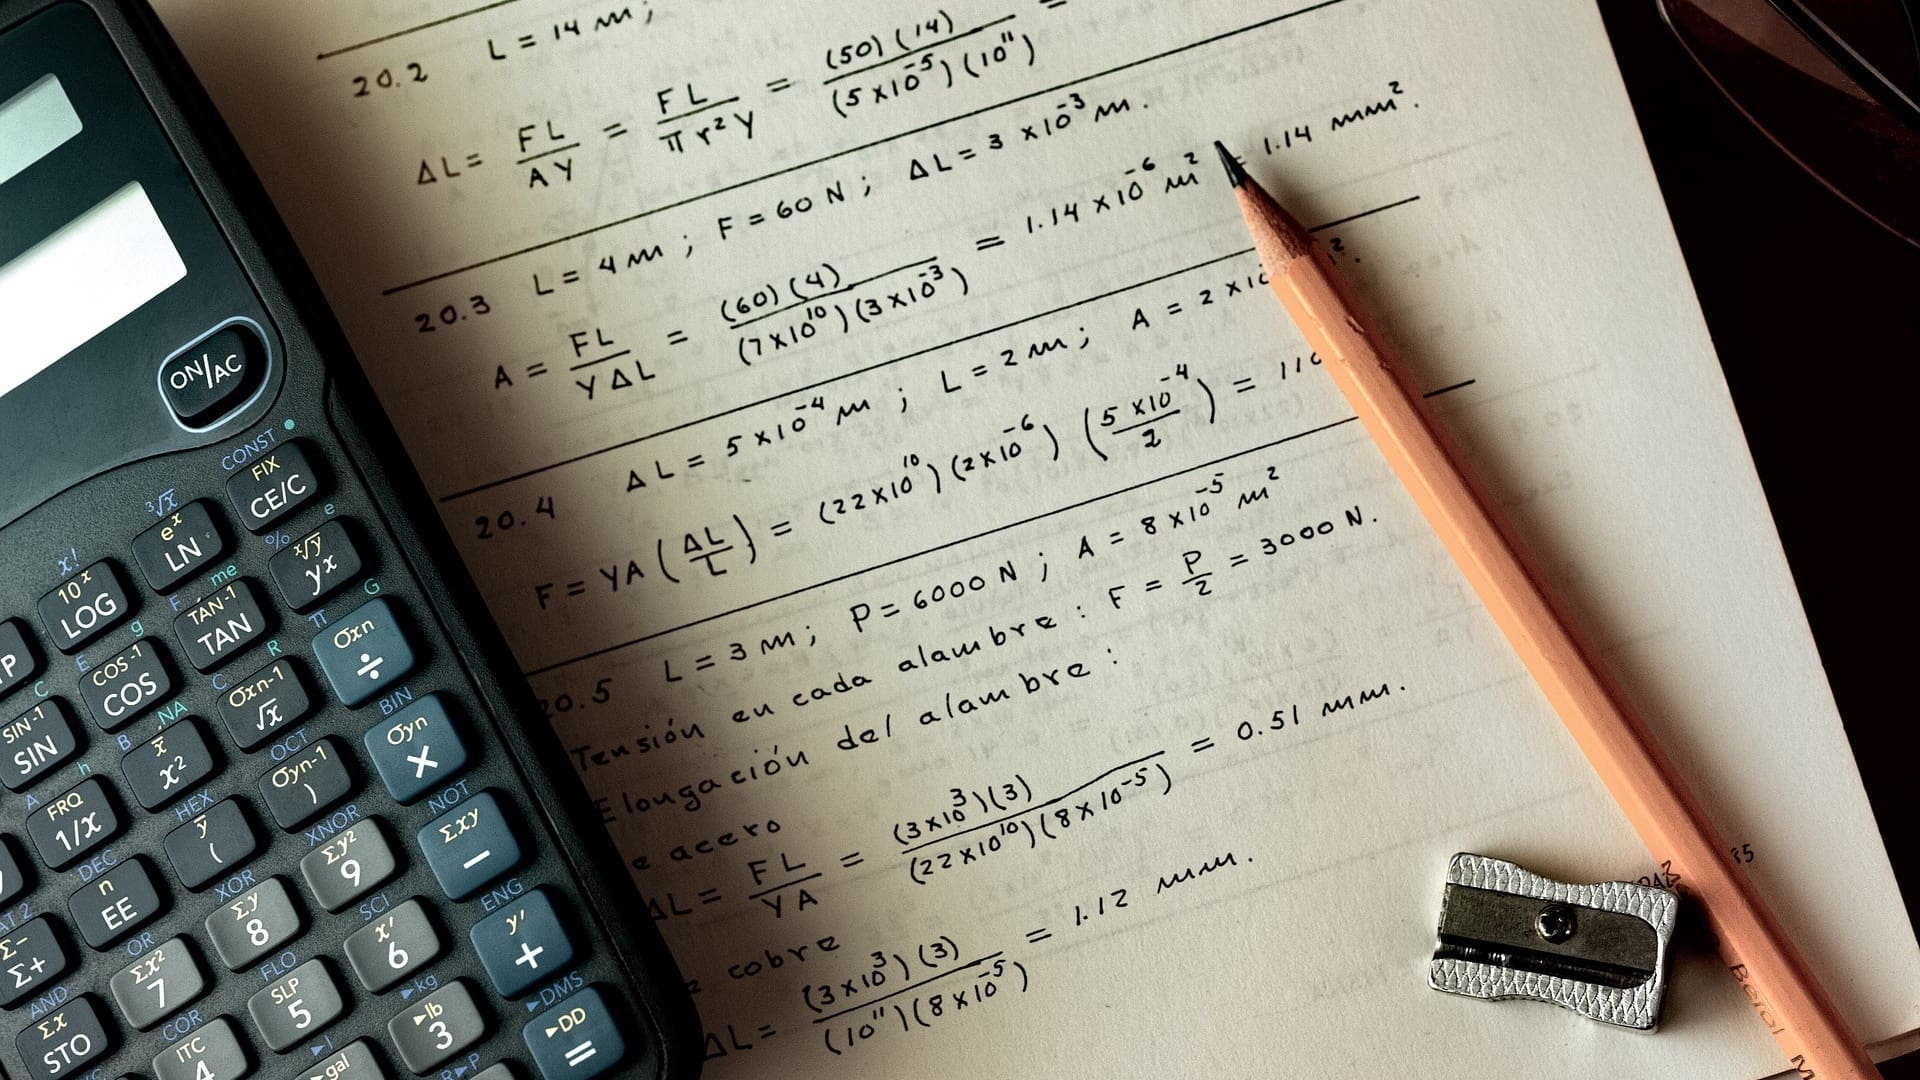 L = 14 m ;
20.2
ΔL = FL/AY = FL/πr²Y = (50)(14)/(5×10⁻⁵)(10¹¹) =
20.3 L = 4 m ; F = 60 N ; ΔL = 3 ×10⁻³ m .
A = FL/YΔL = (60)(4)/(7×10¹⁰)(3×10⁻³) = 1.14 ×10⁻⁶ m² = 1.14 mm² .
20.4 ΔL = 5 ×10⁻⁴ m ; L = 2 m ; A = 2 ×10
F = YA (ΔL/L) = (22×10¹⁰)(2×10⁻⁶) (5×10⁻⁴/2) =
20.5 L = 3 m ; P = 6000 N ; A = 8 ×10⁻⁵ m²
Tensión en cada alambre : F = P/2 = 3000 N .
Elongación del alambre :
e acero
ΔL = FL/YA = (3×10³)(3)/(22×10¹⁰)(8×10⁻⁵) = 0.51 mm .
cobre
ΔL = (3×10³)(3)/(10¹¹)(8×10⁻⁵) = 1.12 mm .
ON/AC
CONST
FIX
CE/C
³√x
eˣ
LN
% e
ˣ√y
yx
x!
10ˣ
LOG
F me
TAN-1
TAN
π G
σxn
÷
P
E g
COS-1
COS
C R
σxn-1
√x
BIN
σyn
×
C
SIN-1
SIN
B NA
x̄
x²
OCT
σyn-1
)
NOT
Σxy
−
A h
FRQ
1/x
HEX
ȳ
(
XNOR
Σy²
9
ENG
y'
+
DEC
n
EE
XOR
Σy
8
SCI
x'
6
▸DMS
▸DD
=
Σ−
Σ+
OR
Σx²
7
FLO
SLP
5
▸kg
▸lb
3
AND
Σx
STO
COR
ITC
4
▸l
▸gal
R▸P
Berol